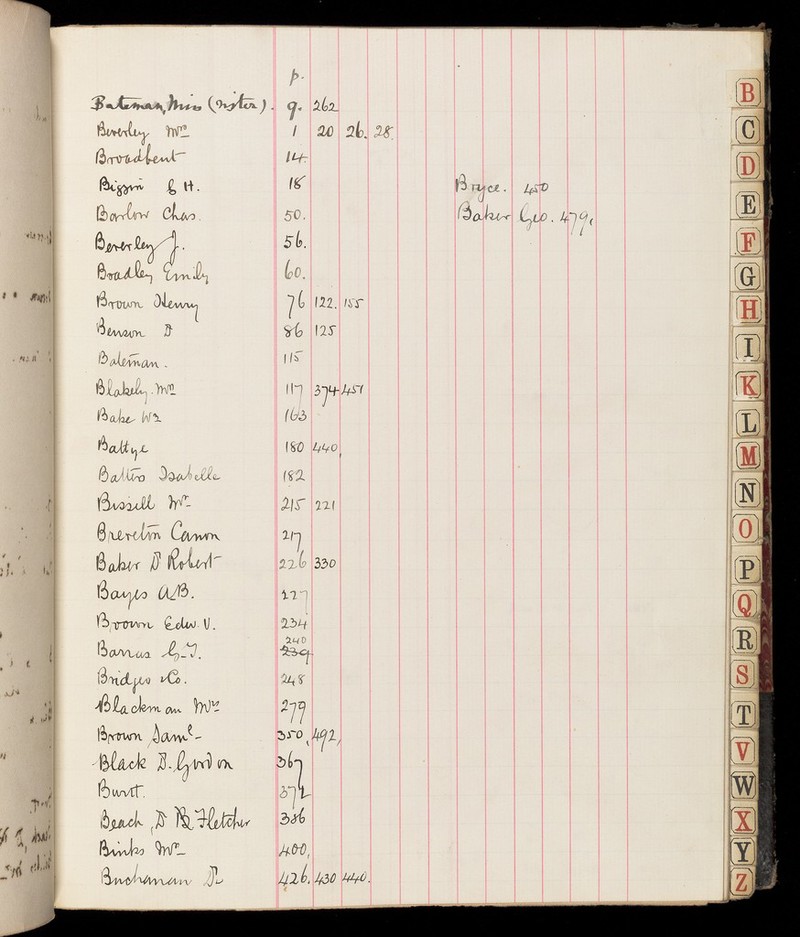 p.
Bateman, Miss (Sister). 9. 262
Beverley Mrs 1 20 26. 28.
Broadbent 14.
Biggin G H. 18
Barlow Chas. 50.
Beverley J. 56.
Bradley Emily 60.
Brown Henry 76 122. 155
Benson Dr 86 125
Bateman. 115
Blakely. Mrs 117 374 451
Bake Wm 163
Battye 180 440,
Isabelle 182
Bissill Mr 215 221
Brereton Canon 217
Baker Dr Robert 226 330
Bayes A.B. 227
Brown Edw. V. 234
240
239
Bridges & Co. 248
Blackman Mrs 279
Brown Saml 350, 492,
Black D. Gordon 367
Burtt. 372
Beach, Dr Fletcher 386
Binks Mr 400,
Buchanan Dr 426. 430 440.
Bryce. 450
Baker Geo. 479,
B
C
D
E
F
G
H
I
K
L
M
N
O
P
Q
R
S
T
V
W
X
Y
Z